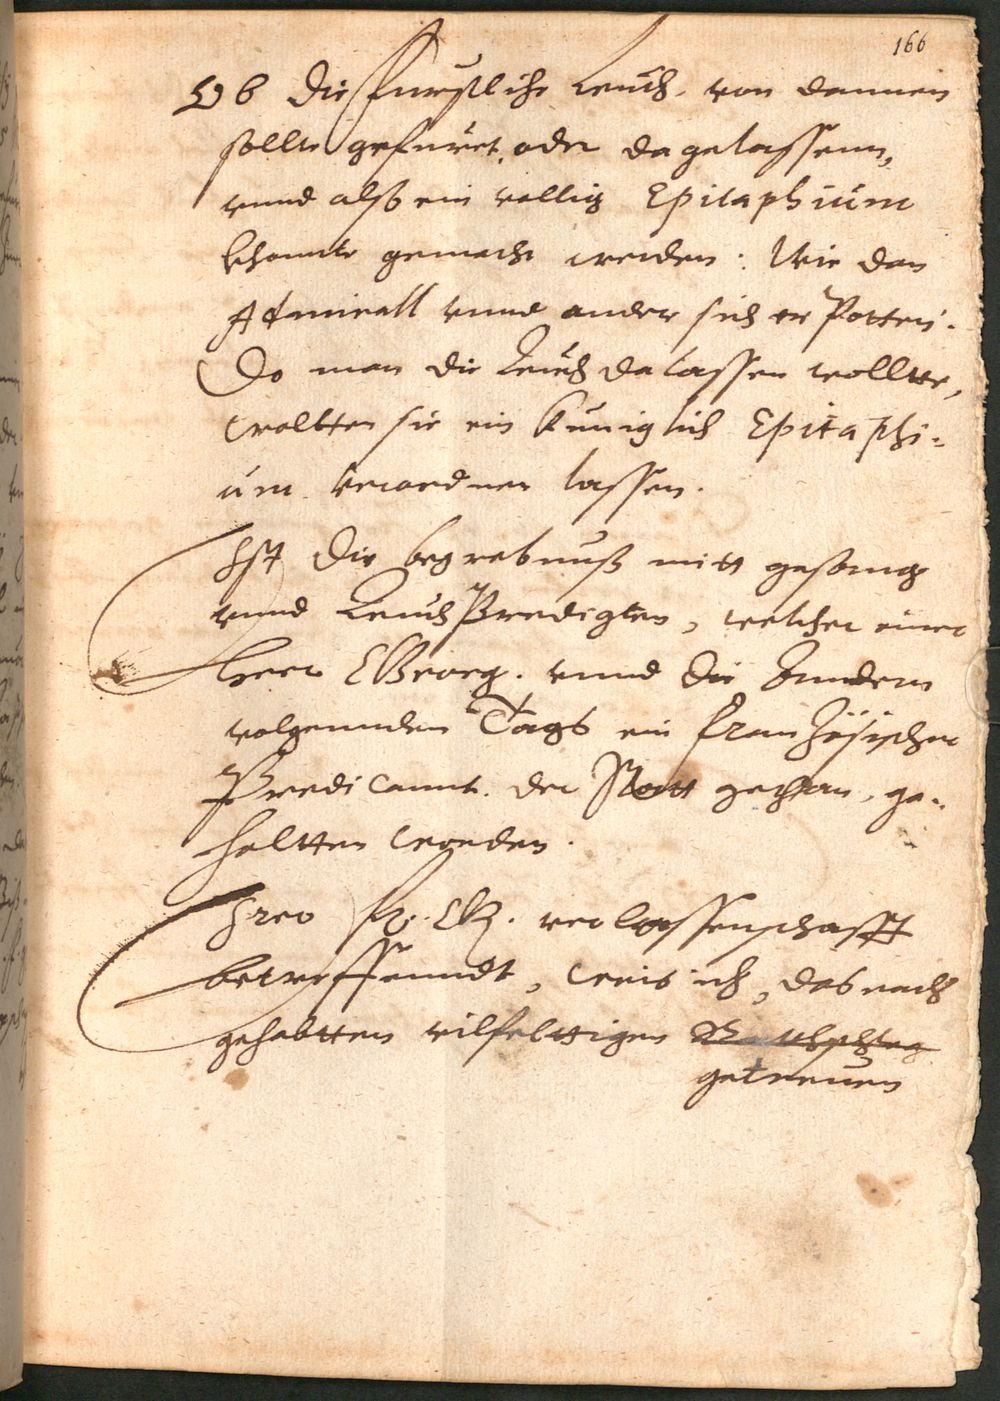 166
Ob die furstliche Leuch, von dannen
sollte gefüret, oder da gelassenn,
unnd alß ein vellig Epitaphium
khonnte gemacht werden: Wie dan
Admirall unnd ander sich er Potten.
Do man die Leuch da lassen wollte,
wolltten sie ein kuniglich Epitaphi-
um verordnen lassen.
Ist die begrebnuß mitt gesang
unnd Leuch Predigten, welcher einer
Herr Georg. unnd die Anndern
volgennden Tags ein Französischer
Predicannt der Statt gethan, ge-
haltten worden.
Irer F. G. verlassenschafft
betreffenndt, weis ich, das nach
gehabtten vilfelttigen
getreuen